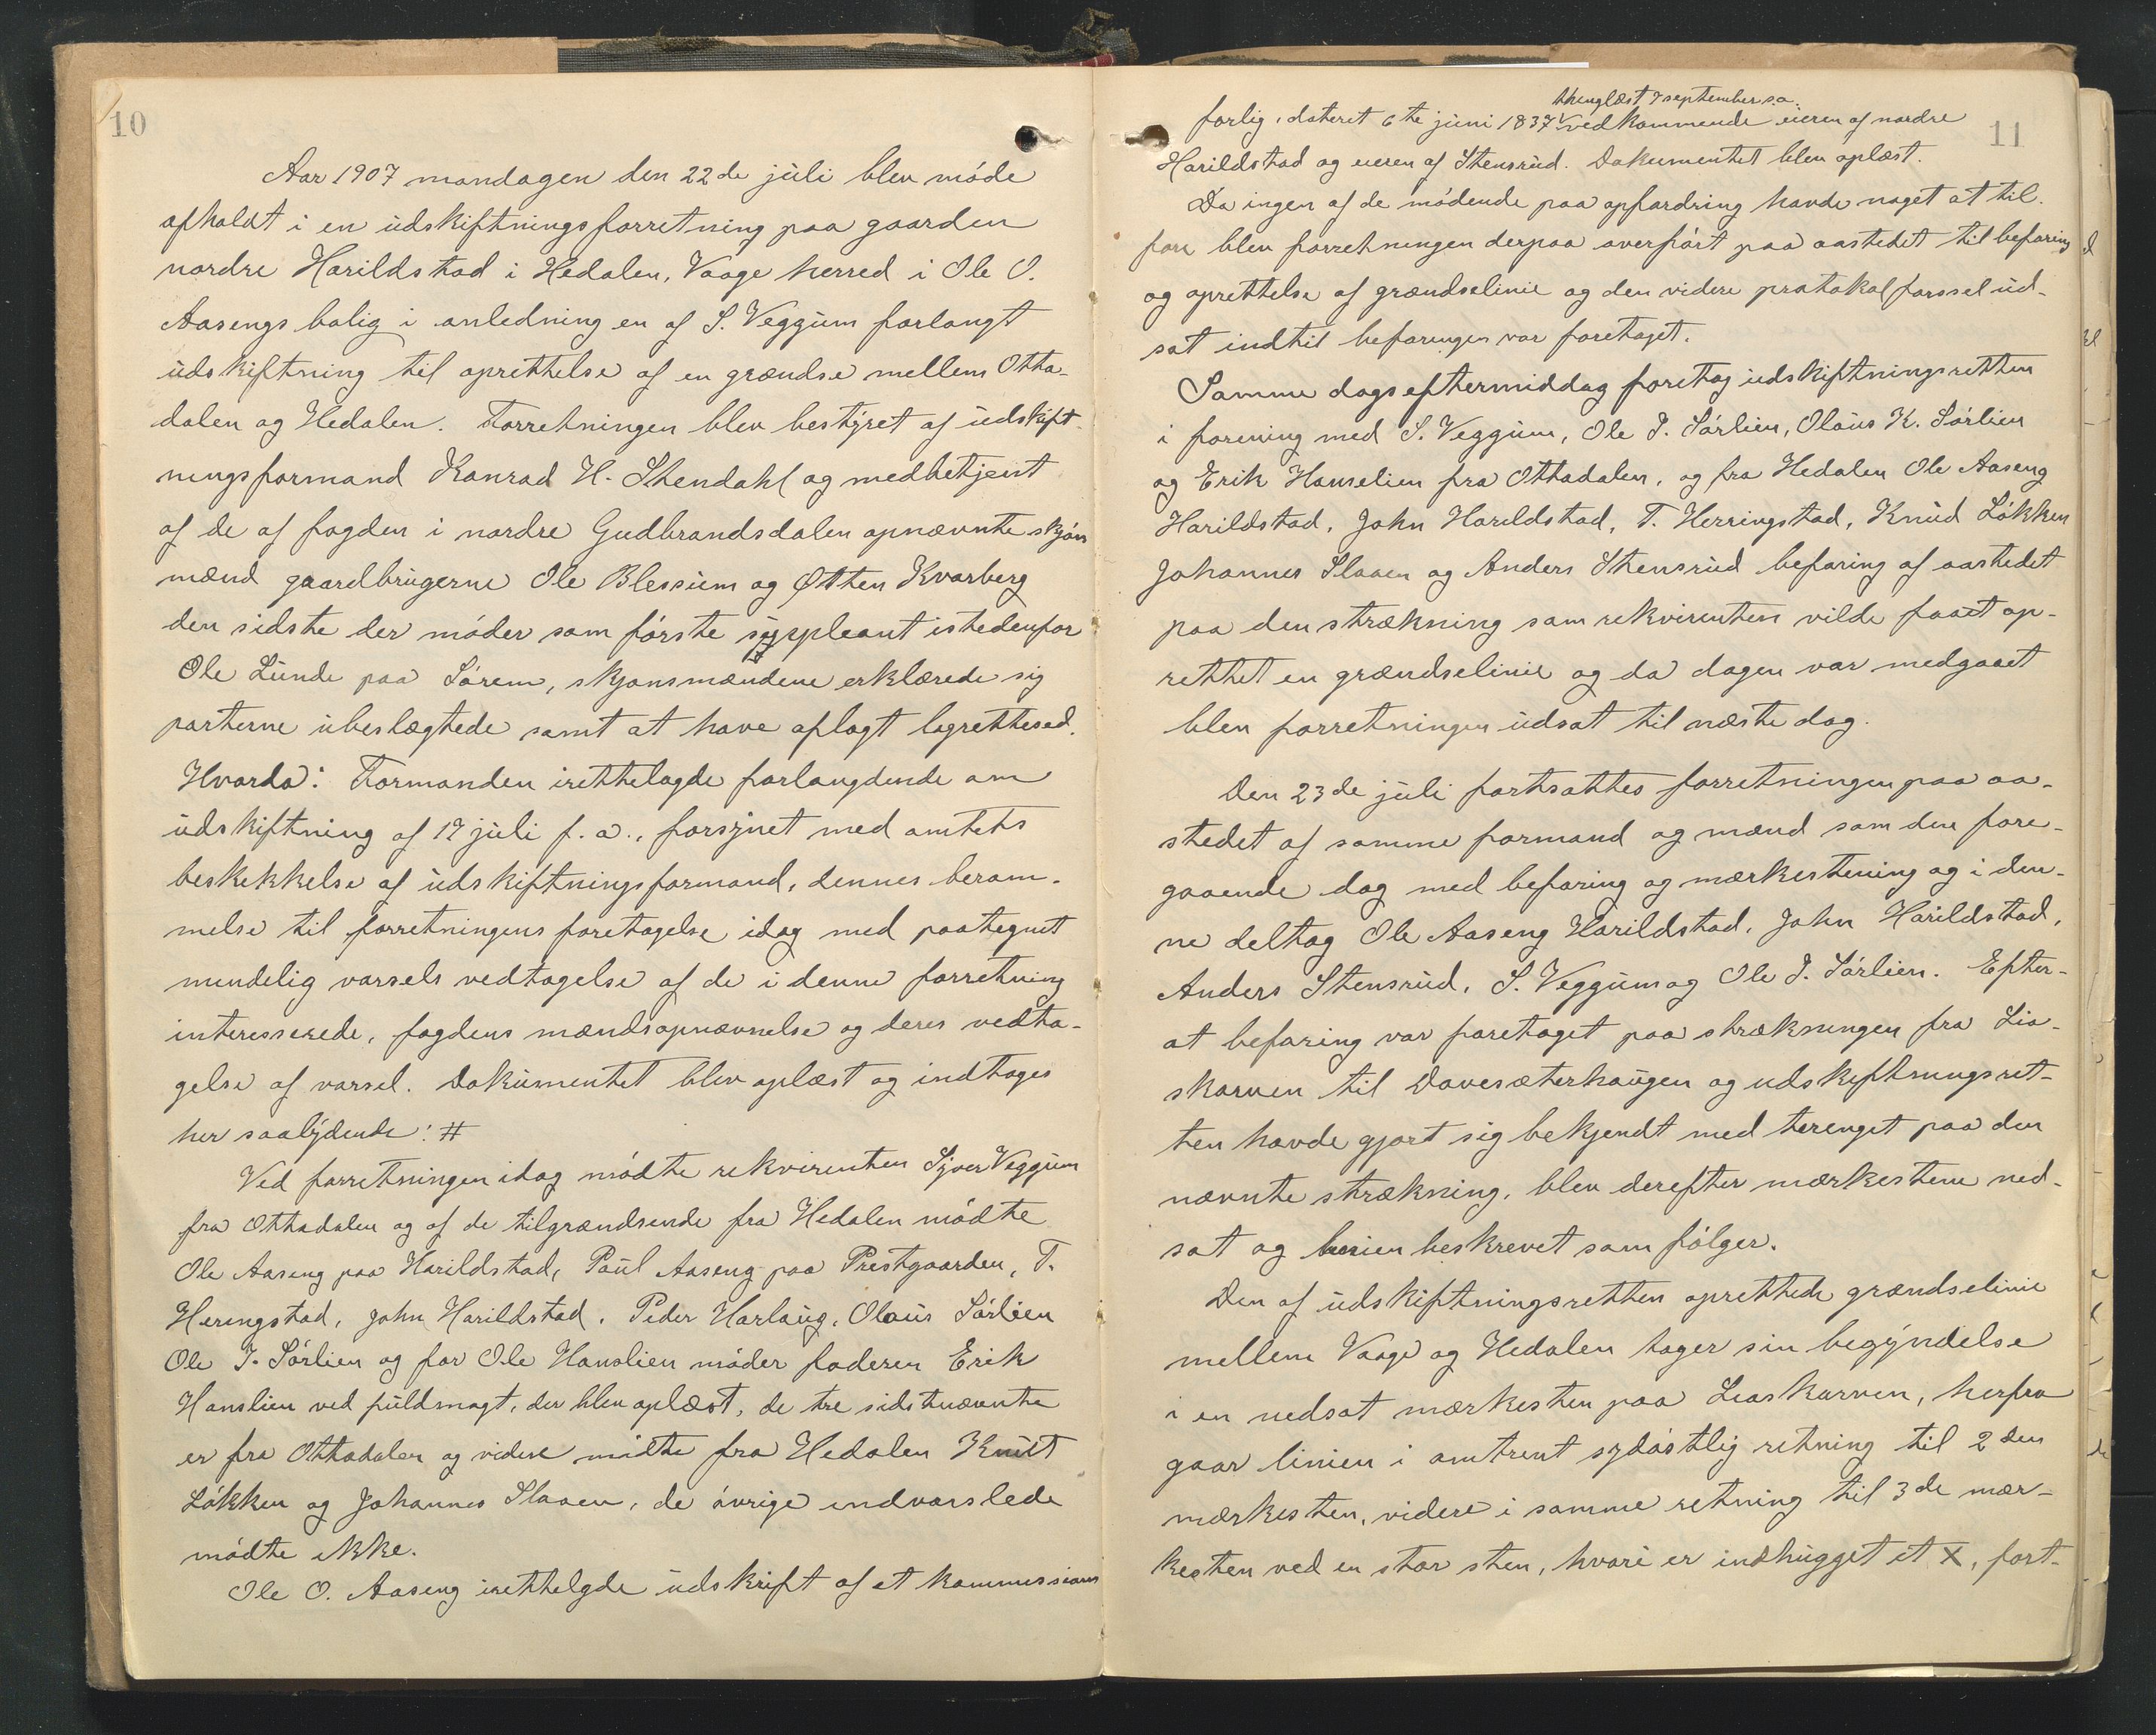 10
Aar 1907 mandagen den 22de juli blev møde
afholdt i en udskiftningsforretning paa gaarden
nordre Harildstad i Hedalen, Vaage herred i Ole O.
Aasengs bolig i anledning en af S. Veggum forlangt
udskiftning til oprettelse af en grændse mellem Otta-
dalen og Hedalen. Forretningen blev bestyret af udskift-
ningsformand Konrad H. Stendahl og medbetjent
af de af fogden i nordre Gudbrandsdalen opnævnte skjøns
mænd gaardbrugerne Ole Blessum og Otten Kvarberg
den sidste der møder som første suppleant istedenfor
Ole Lunde paa Sørem, skjønsmændene erklærede sig
parterne ubeslægtede samt at have aflagt lagrettesed.
Hvorda: Formanden irettelagde forlangdende om
udskiftning af 19 juli f. a., forsynet med amtets
beskekkelse af udskiftningsformand, dennes beram-
melse til forretningens foretagelse idag med paategnet
mundelig varsels vedtagelse af de i denne forretning
interesserede, fogdens mændsopnævnelse og deres vedta-
gelse af varsel. Dokumentet blev oplæst og indtages
her saalydende: #
Ved forretningen idag mødte rekvirenten Syver Veggum
fra Ottadalen og af de tilgrændsende fra Hedalen mødte
Ole Aaseng paa Harildstad, Paul Aaseng paa Prestgaarden, T.
Heringstad, John Harildstad, Peder Harlaug, Olaus Sørlien
Ole J. Sørlien og for Ole Hanslien møder faderen Erik
Hanslien ved fuldmagt, der blev oplæst, de tre sidstnævnte
er fra Ottadalen og videre mødte fra Hedalen Knut
Løkken og Johannes Slaaen, de øvrige indvarslede
mødte ikke.
Ole O. Aaseng irettelgde udskrift af et kommissions
11
thinglæst 7 september s.a.
forlig, dateret 6te juni 1837 vedkommende eieren af nordre
Harildstad og eieren af Stensrud. Dokumentet blev oplæst.
Da ingen af de mødende paa opfordring havde noget at til-
føre blev forretningen derpaa overført paa aastedet til befaring
og oprettelse af grændselinie og den videre protokolførssel ud-
sat indtil befaringen var foretaget.
Samme dags eftermiddag foretog udskiftningsretten
i forening med S. Veggum, Ole J. Sørlien, Olaus K. Sørlien
og Erik Hanselien fra Ottadalen, og fra Hedalen Ole Aaseng
Harildstad, John Harildstad, T. Herringstad, Knud Løkken
Johannes Slaaen og Anders Stensrud befaring af aastedet
paa den strækning som rekvirenten vilde faaet op-
rettet en grændselinie og da dagen var medgaaet
blev forretningen udsat til næste dag.
Den 23de juli fortsattes forretningen paa aa-
stedet af samme formand og mænd som den fore-
gaaende dag med befaring og mærkestening og i den-
ne deltog Ole Aaseng Harildstad, John Harildstad,
Anders Stensrud, S. Veggum og Ole J. Sørlien. Efter-
at befaring var foretaget paa strækningen fra Lia-
skarven til Davesæterhaugen og udskiftningsret-
ten havde gjort sig bekjendt med terenget paa den
nævnte strækning, blev derefter mærkestene ned-
sat og linien beskrevet som følger.
Den af udskiftningsretten oprettede grændselinie
mellem Vaage og Hedalen tager sin begyndelse
i en nedsat mærkesten paa Leaskarven, herfra
gaar linien i omtrent sydøstlig retning til 2den
mærkesten, videre i samme retning til 3de mær-
kesten ved en stor sten, hvori er indhugget et X, fort-